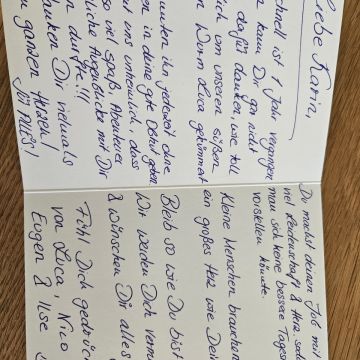 Liebe Karin,
chnell ist 1 Jahr vergangen
kann Dir gar nicht
dafür danken, wie toll
ich um unseren süßen
n Wurm Luca gekümmert
nnten ihn jederzeit ohne
en in deine gute Obhut geben
ut uns unheimlich, dass
so viel Spaß, Abenteuer
liche Augenblicke mit Dir
n durfte!!!
anken Dir vielmals
n ganzen Herzen!
für ALLES!
Du machst deinen Job mit
viel Leidenschaft & Herz, soda
man sich keine bessere Tage
vorstellen könnte.
Kleine Menschen brauchen
ein großes Herz wie Dein
Bleib so wie Du bist
Wir werden Dich verm
& wünschen Dir alles
Fühl Dich gedrück
von Luca, Nico
Eugen & Ilse